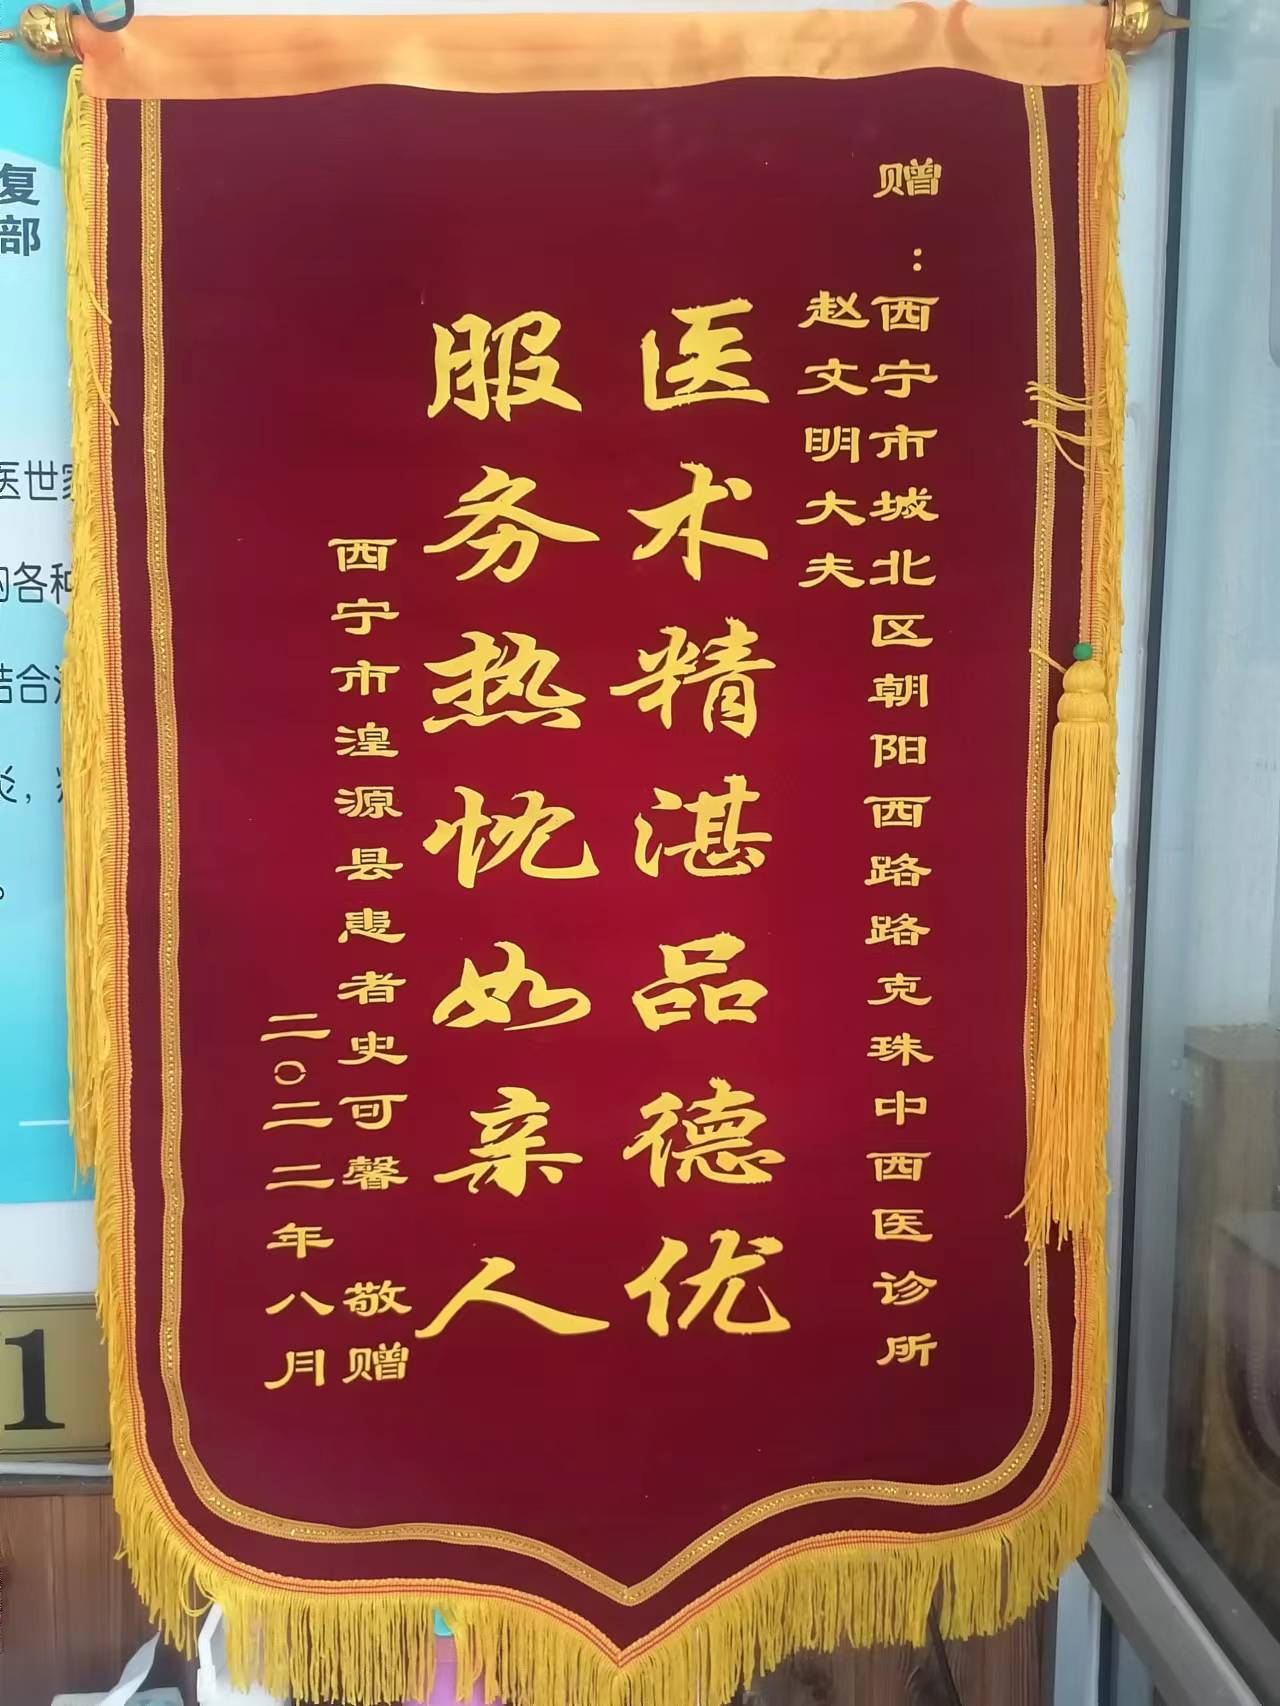 赠：西宁市城北区朝阳西路路克珠中西医诊所
赵文明大夫
医术精湛品德优
服务热忱如亲人
西宁市湟源县患者史可馨 敬赠
二〇二二年八月
复
部
医世家
的各种
结合
炎，
1